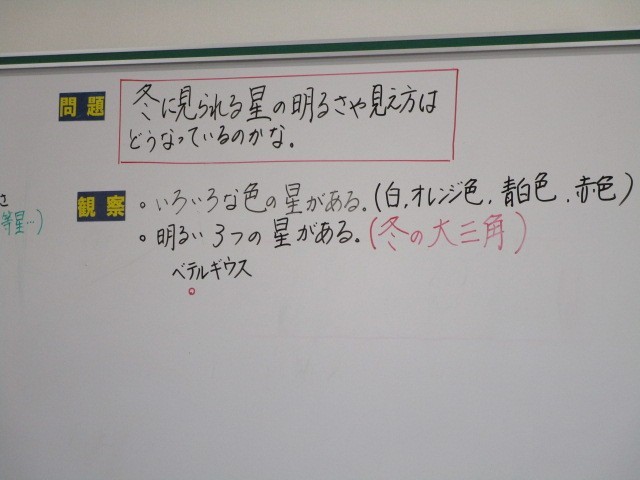 問題
冬に見られる星の明るさや見え方は
どうなっているのかな。
さ
等星…)
観察
。いろいろな色の星がある。(白,オレンジ色,青白色,赤色)
。明るい3つの星がある。(冬の大三角)
ベテルギウス